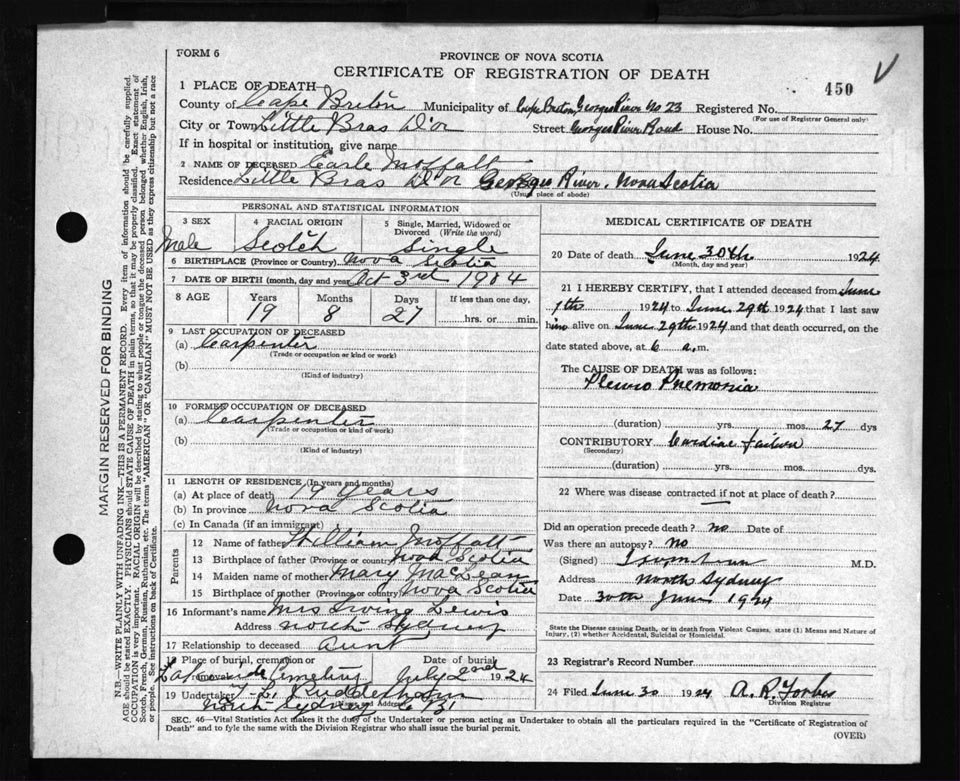 FORM 6
PROVINCE OF NOVA SCOTIA
CERTIFICATE OF REGISTRATION OF DEATH
450
1 PLACE OF DEATH—
County of Cape Breton Municipality of Cape Breton Georges River No 23 Registered No.
(For use of Registrar General only)
City or Town Little Bras D'or Street Georges River Road House No.
If in hospital or institution, give name
2 NAME OF DECEASED Earle Moffatt
Residence Little Bras D'or Georges River, Nova Scotia
(Usual place of abode)
PERSONAL AND STATISTICAL INFORMATION
3 SEX 4 RACIAL ORIGIN 5 Single, Married, Widowed or Divorced (Write the word)
Male Scotch Single
6 BIRTHPLACE (Province or Country) Nova Scotia
7 DATE OF BIRTH (month, day and year) Oct 3rd 1904
8 AGE Years Months Days If less than one day,
19 8 27 hrs. or min.
9 LAST OCCUPATION OF DECEASED
(a) Carpenter
(Trade or occupation or kind or work)
(b)
(Kind of industry)
10 FORMER OCCUPATION OF DECEASED
(a) Carpenter
(Trade or occupation or kind of work)
(b)
(Kind of industry)
11 LENGTH OF RESIDENCE (In years and months)
(a) At place of death 19 years
(b) In province Nova Scotia
(c) In Canada (if an immigrant)
Parents
12 Name of father William Moffatt
13 Birthplace of father (Province or country) Nova Scotia
14 Maiden name of mother Mary MacLean
15 Birthplace of mother (Province or country) Nova Scotia
16 Informant's name Mrs Irving Lewis
Address North Sydney
17 Relationship to deceased Aunt
18 Place of burial, cremation or removal Date of burial
Cemetery July 2nd 1924
19 Undertaker
(Name and Address) North Sydney C B
MEDICAL CERTIFICATE OF DEATH
20 Date of death June 30th 1924
(Month, day and year)
21 I HEREBY CERTIFY, that I attended deceased from June
7th 1924 to June 29th 1924 that I last saw
him alive on June 29th 1924 and that death occurred, on the
date stated above, at 6 a.m.
The CAUSE OF DEATH was as follows:
Pleuro Pnemonia
(duration) yrs. mos. 27 dys
CONTRIBUTORY Cardiac failure
(Secondary)
(duration) yrs. mos. dys.
22 Where was disease contracted if not at place of death?
Did an operation precede death? no Date of
Was there an autopsy? No
(Signed) M.D.
Address North Sydney
Date 30th June 1924
State the Disease causing Death, or in death from Violent Causes, state (1) Means and Nature of
Injury, (2) whether Accidental, Suicidal or Homicidal.
23 Registrar's Record Number
24 Filed June 30 1924 A. R. Forbes
Division Registrar
SEC. 46—Vital Statistics Act makes it the duty of the Undertaker or person acting as Undertaker to obtain all the particulars required in the "Certificate of Registration of
Death" and to fyle the same with the Division Registrar who shall issue the burial permit.
(OVER)
MARGIN RESERVED FOR BINDING
N.B.—WRITE PLAINLY WITH UNFADING INK—THIS IS A PERMANENT RECORD. Every item of information should be carefully supplied.
AGE should be stated EXACTLY. PHYSICIANS should STATE CAUSE OF DEATH in plain terms, so that it may be properly classified. Exact statement of
OCCUPATION is very important. RACIAL ORIGIN will be described by stating to what people or tongue the deceased person belonged whether English, Irish,
Scotch, French, German, Russian, Ruthenian, etc. The terms "AMERICAN" OR "CANADIAN" MUST NOT BE USED as they express citizenship but not a race
or people. See instructions on back of Certificate.